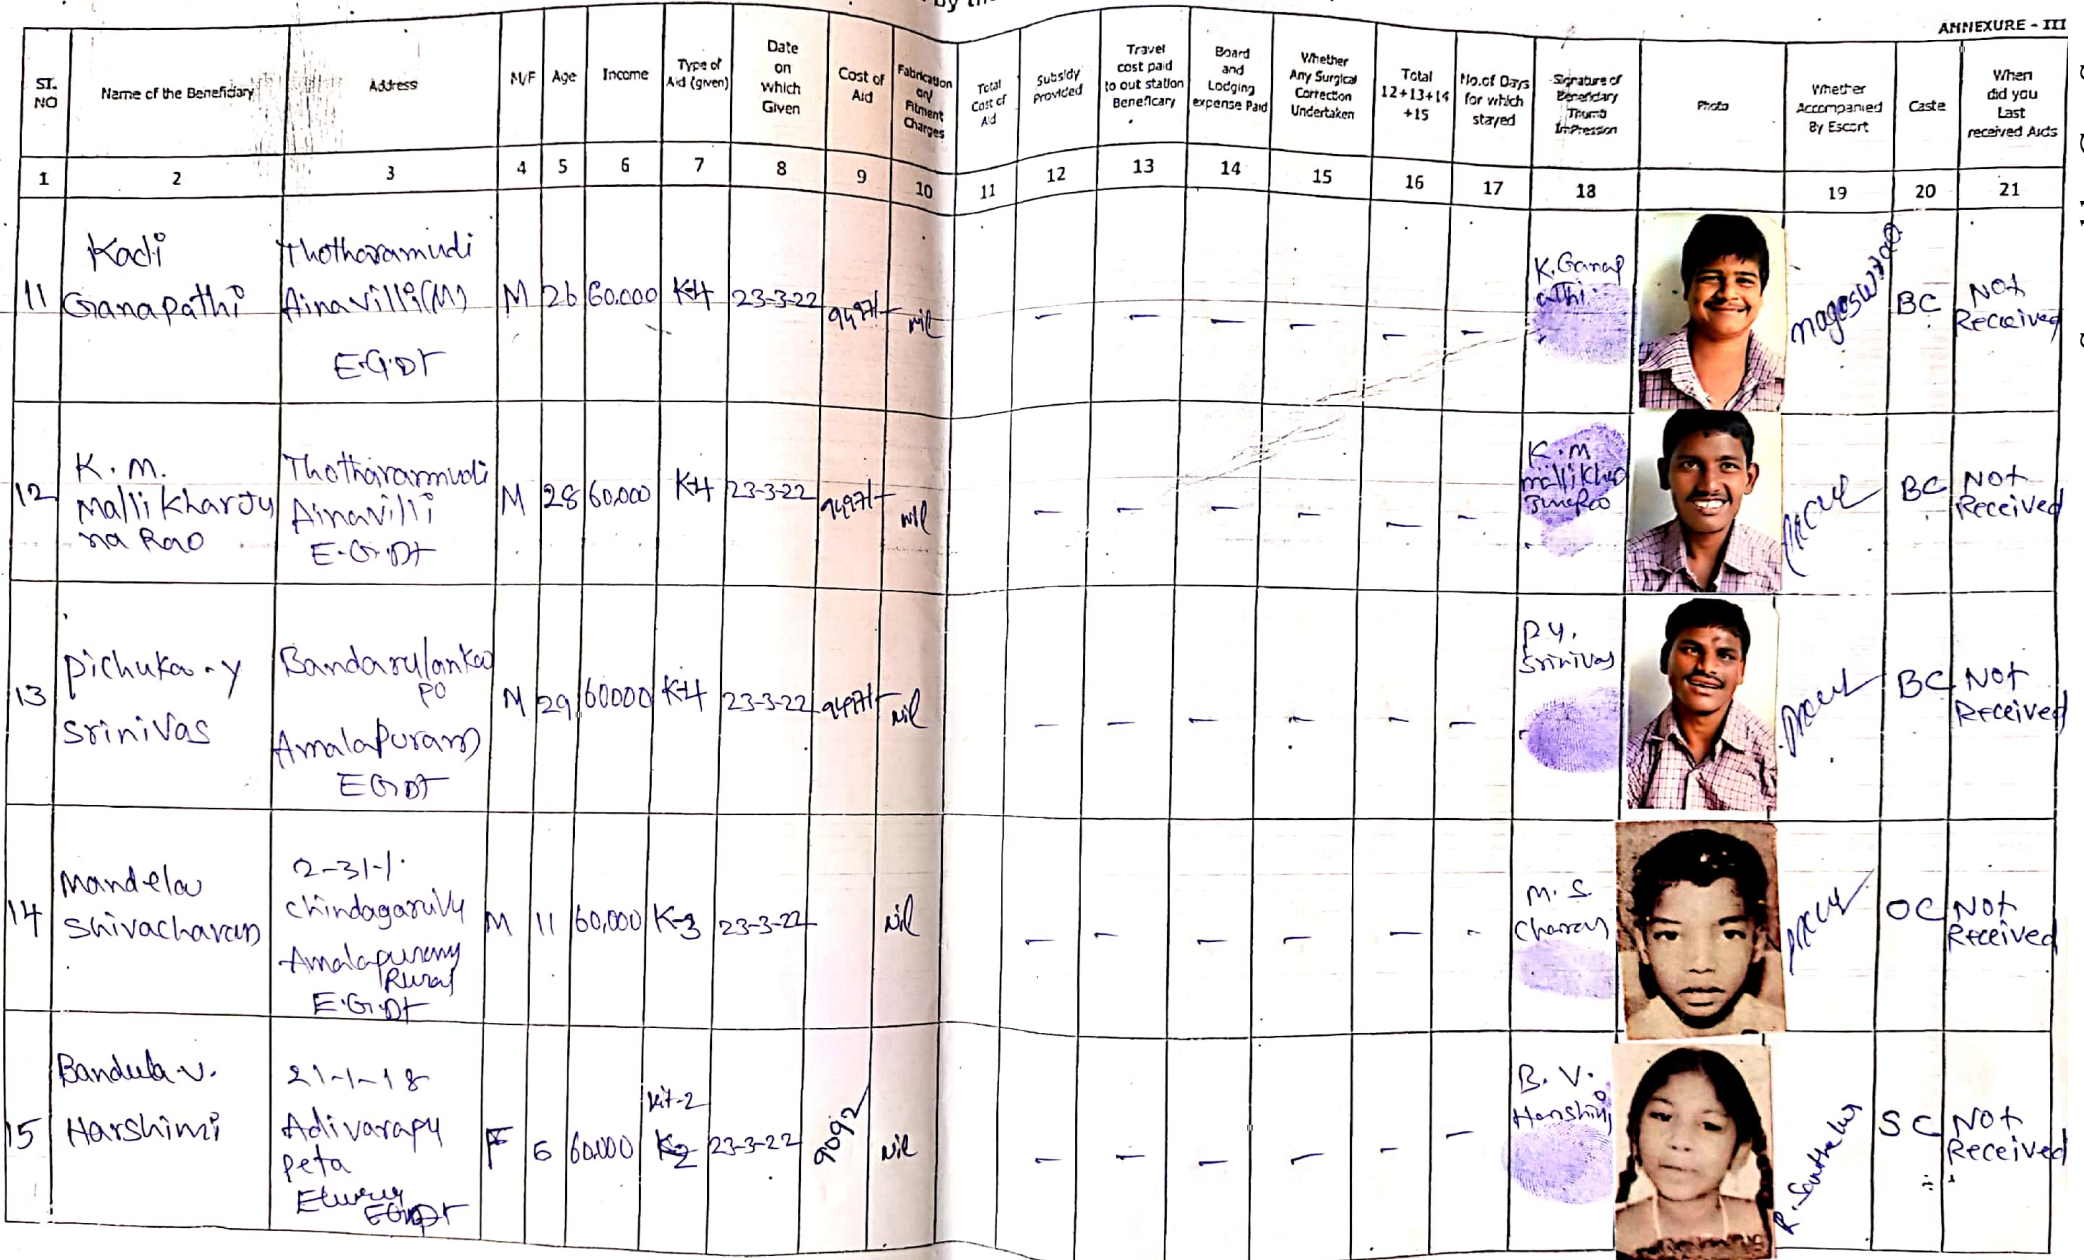 ANNEXURE - III
SI. NO
Name of the Beneficiary
Address
M/F
Age
Income
Type of Aid (given)
Date on Which Given
Cost of Aid
Fabrication on/ Fitment Charges
Total Cost of Aid
Subsidy Provided
Travel cost paid to out station Beneficary
Board and Lodging expense Paid
Whether Any Surgical Correction Undertaken
Total 12+13+14+15
No.of Days for which stayed
Signature of Beneficiary Thumb Impression
Photo
Whether Accompanied By Escort
Caste
When did you Last received Aids
1 2 3 4 5 6 7 8 9 10 11 12 13 14 15 16 17 18 19 20 21
11
Kadi
Ganapathi
Thotharamudi
Ainavilli(M)
E.G.DT
M 26 60.000 K-4 23-3-22 9497/- nil
K.Ganap
athi.
nageswrao
BC
Not
Received
12
K. M.
Mallikharju
na Rao
Thotharamudi
Ainavilli
E.G.Dt
M 28 60,000 K-4 23-3-22 9497/- nil
K.M
mallikhar
BC
Not
Received
13
Pichuka.y
Srinivas
Bandarulanka
PO
Amalapuram
EGDT
M 29 60000 K-4 23-3-22 9497/- Nil
P Y.
Srinivas
BC
Not
Received
14
Mandela
Shivacharan
2-31-1.
Chindagaruvu
Amalapuram
Rural
E.G.Dt
M 11 60,000 K-3 23-3-22 Nil
M. S.
Charan
OC
Not
Received
15
Bandula.V.
Harshini
21-1-18
Adivarapu
Peta
EGDT
F 6 60.000 kit-2 23-3-22 9092 Nil
B. V.
Harshini
SC
Not
Received